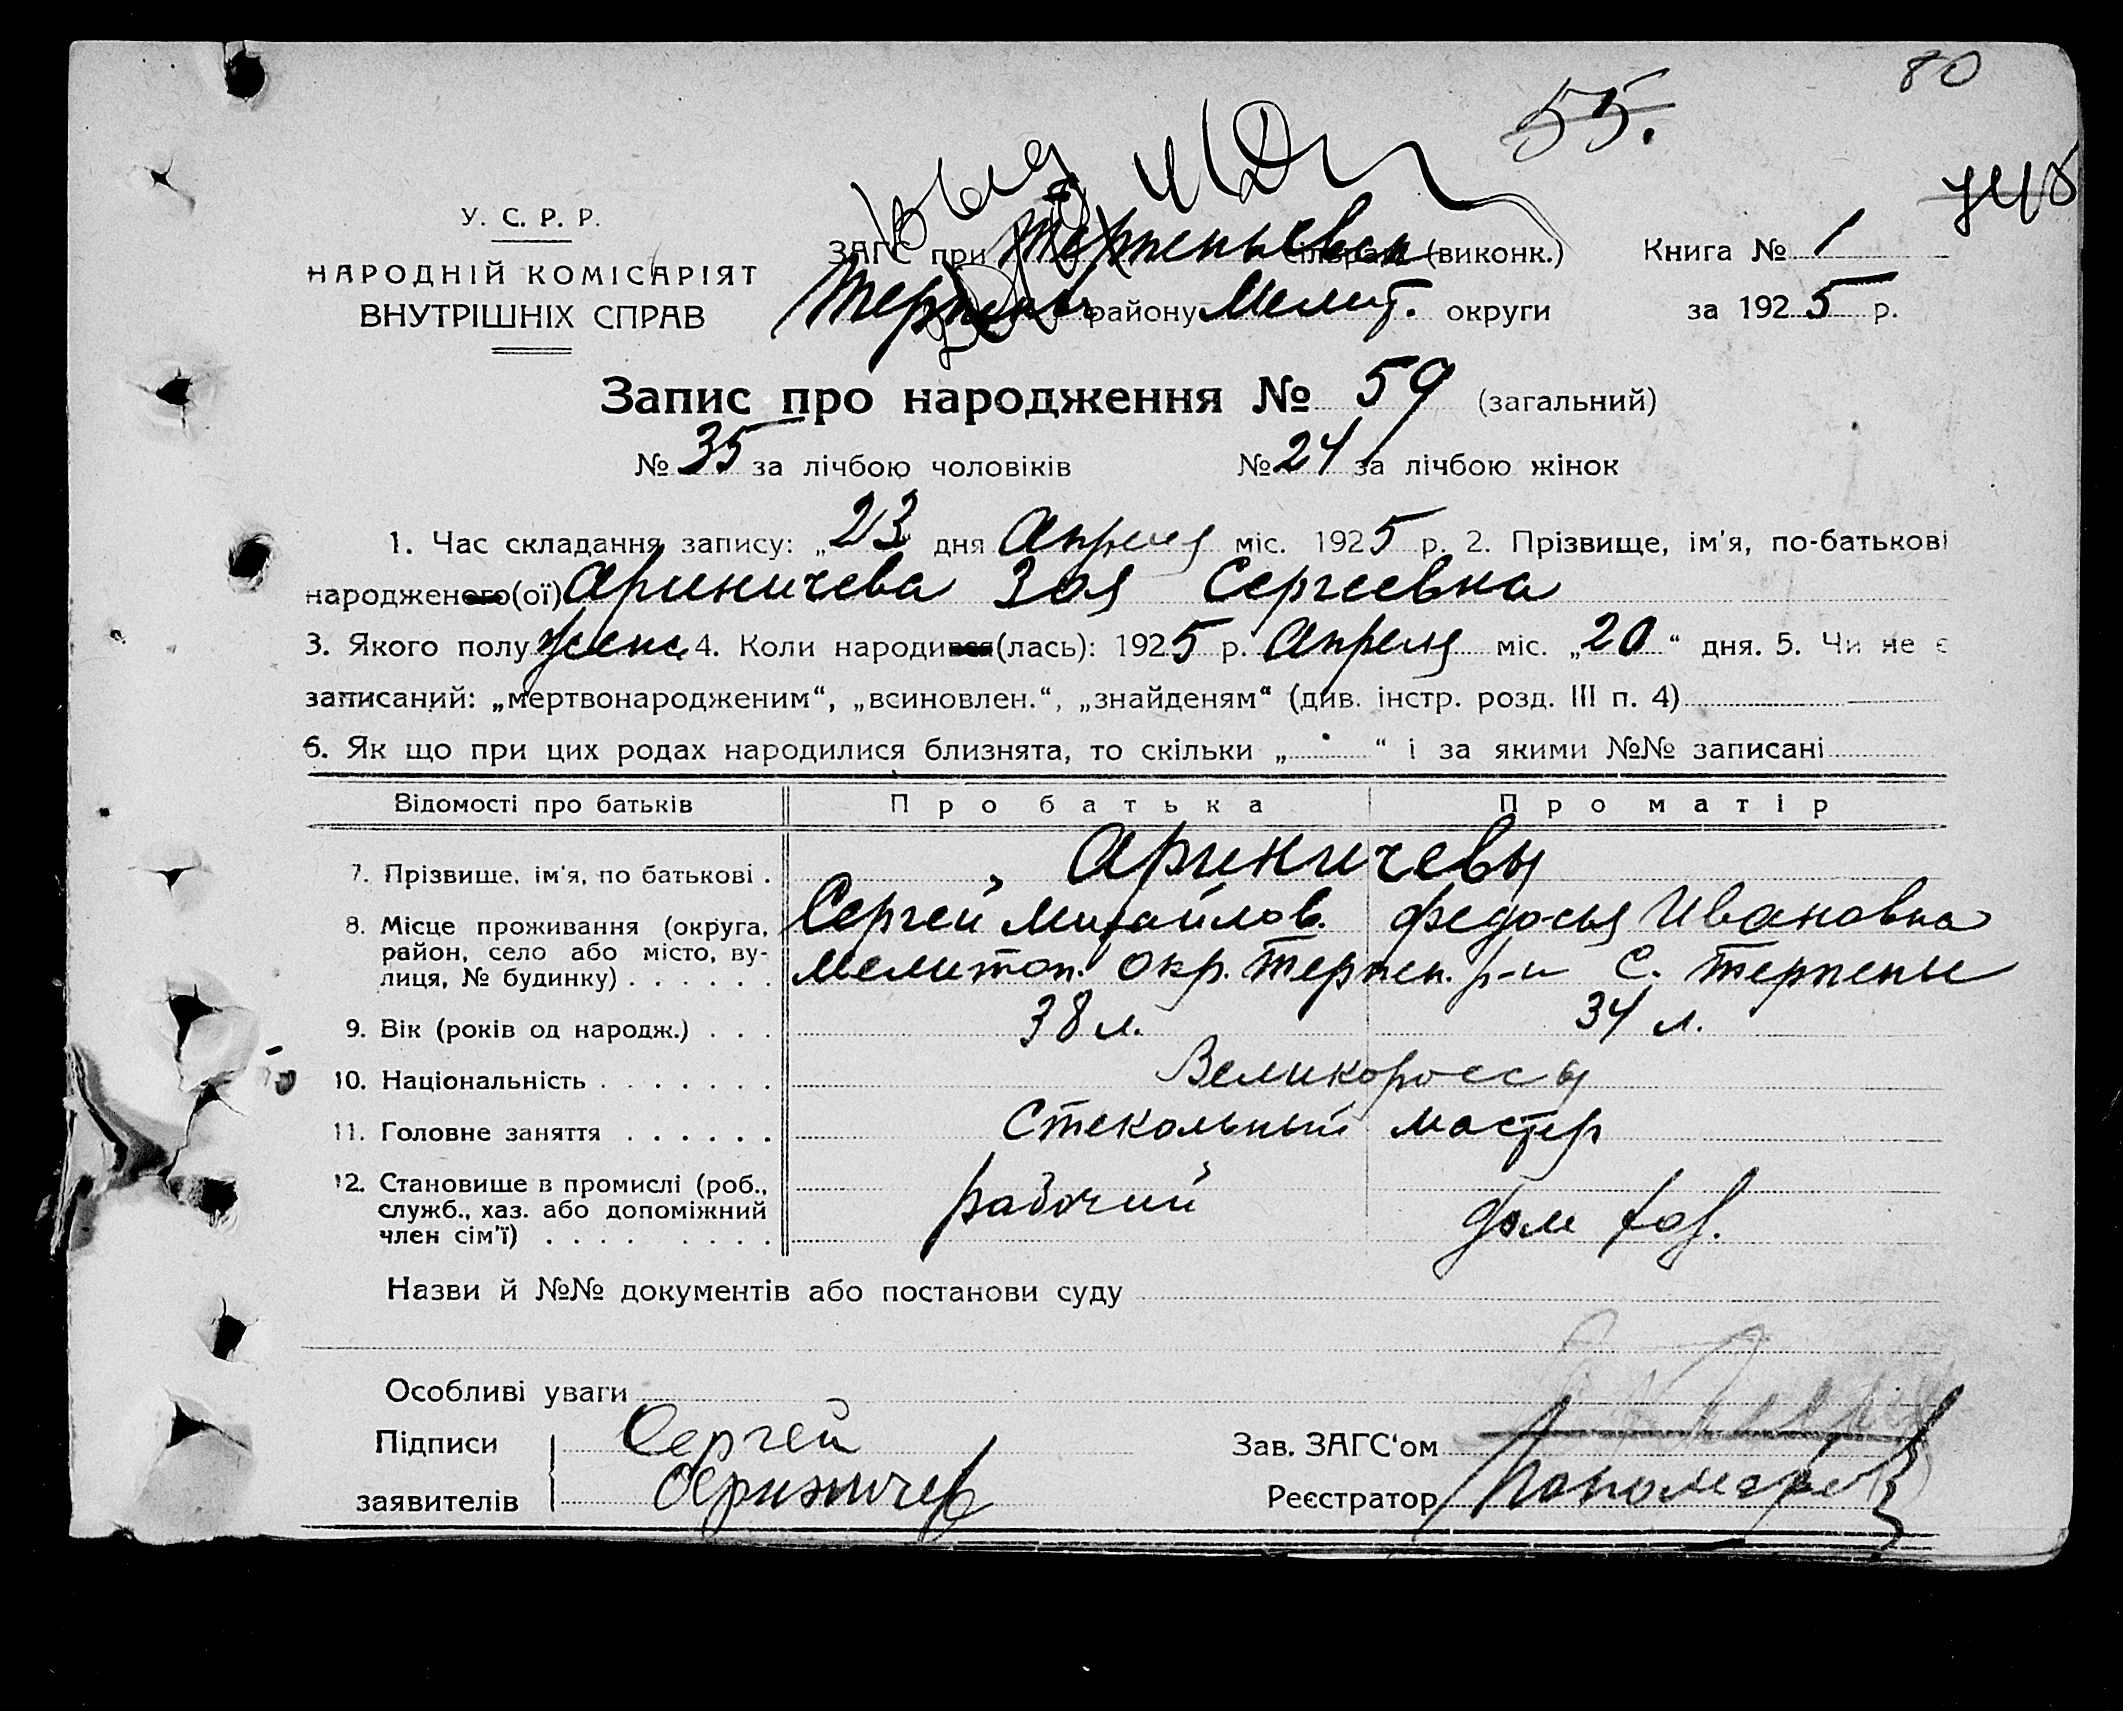 80
55.
У. С. Р. Р.
НАРОДНІЙ КОМІСАРІЯТ
ВНУТРІШНІХ СПРАВ
ЗАГС при Терпеньевск (виконк.) Книга № 1
Терпен району Мелит. округи за 1925 р.
Запис про народження № 59 (загальний)
№ 35 за лічбою чоловіків № 24 за лічбою жінок
1. Час складання запису: „23 дня Апреля міс. 1925 р. 2. Прізвище, ім'я, по-батькові
народженого(ої) Ариничева Зоя Сергеевна
3. Якого полу женс 4. Коли народився(лась): 1925 р. Апреля міс. „20“ дня. 5. Чи не є
записаний: „мертвонародженим“, „всиновлен.“, „знайденям“ (див. інстр. розд. III п. 4)
6. Як що при цих родах народилися близнята, то скільки „ “ і за якими №№ записані
Відомості про батьків Про батька Про матір
7. Прізвище, ім'я, по батькові . Ариничевы
8. Місце проживання (округа, Сергей Михайлов. Федосья Ивановна
район, село або місто, ву-
лиця, № будинку) . . . . . . Мелитоп. окр. Терпен. р-н с. Терпенье
9. Вік (років од народж.) . . . 38 л. 34 л.
10. Національність . . . . . . . Великороссы
11. Головне заняття . . . . . . Стекольный мастер
12. Становище в промислі (роб.,
служб., хаз. або допоміжний рабочий дом хоз.
член сім'ї) . . . . . . . .
Назви й №№ документів або постанови суду
Особливі уваги
Підписи Сергей Зав. ЗАГС'ом
заявителів Ариничев Реєстратор Пономарев